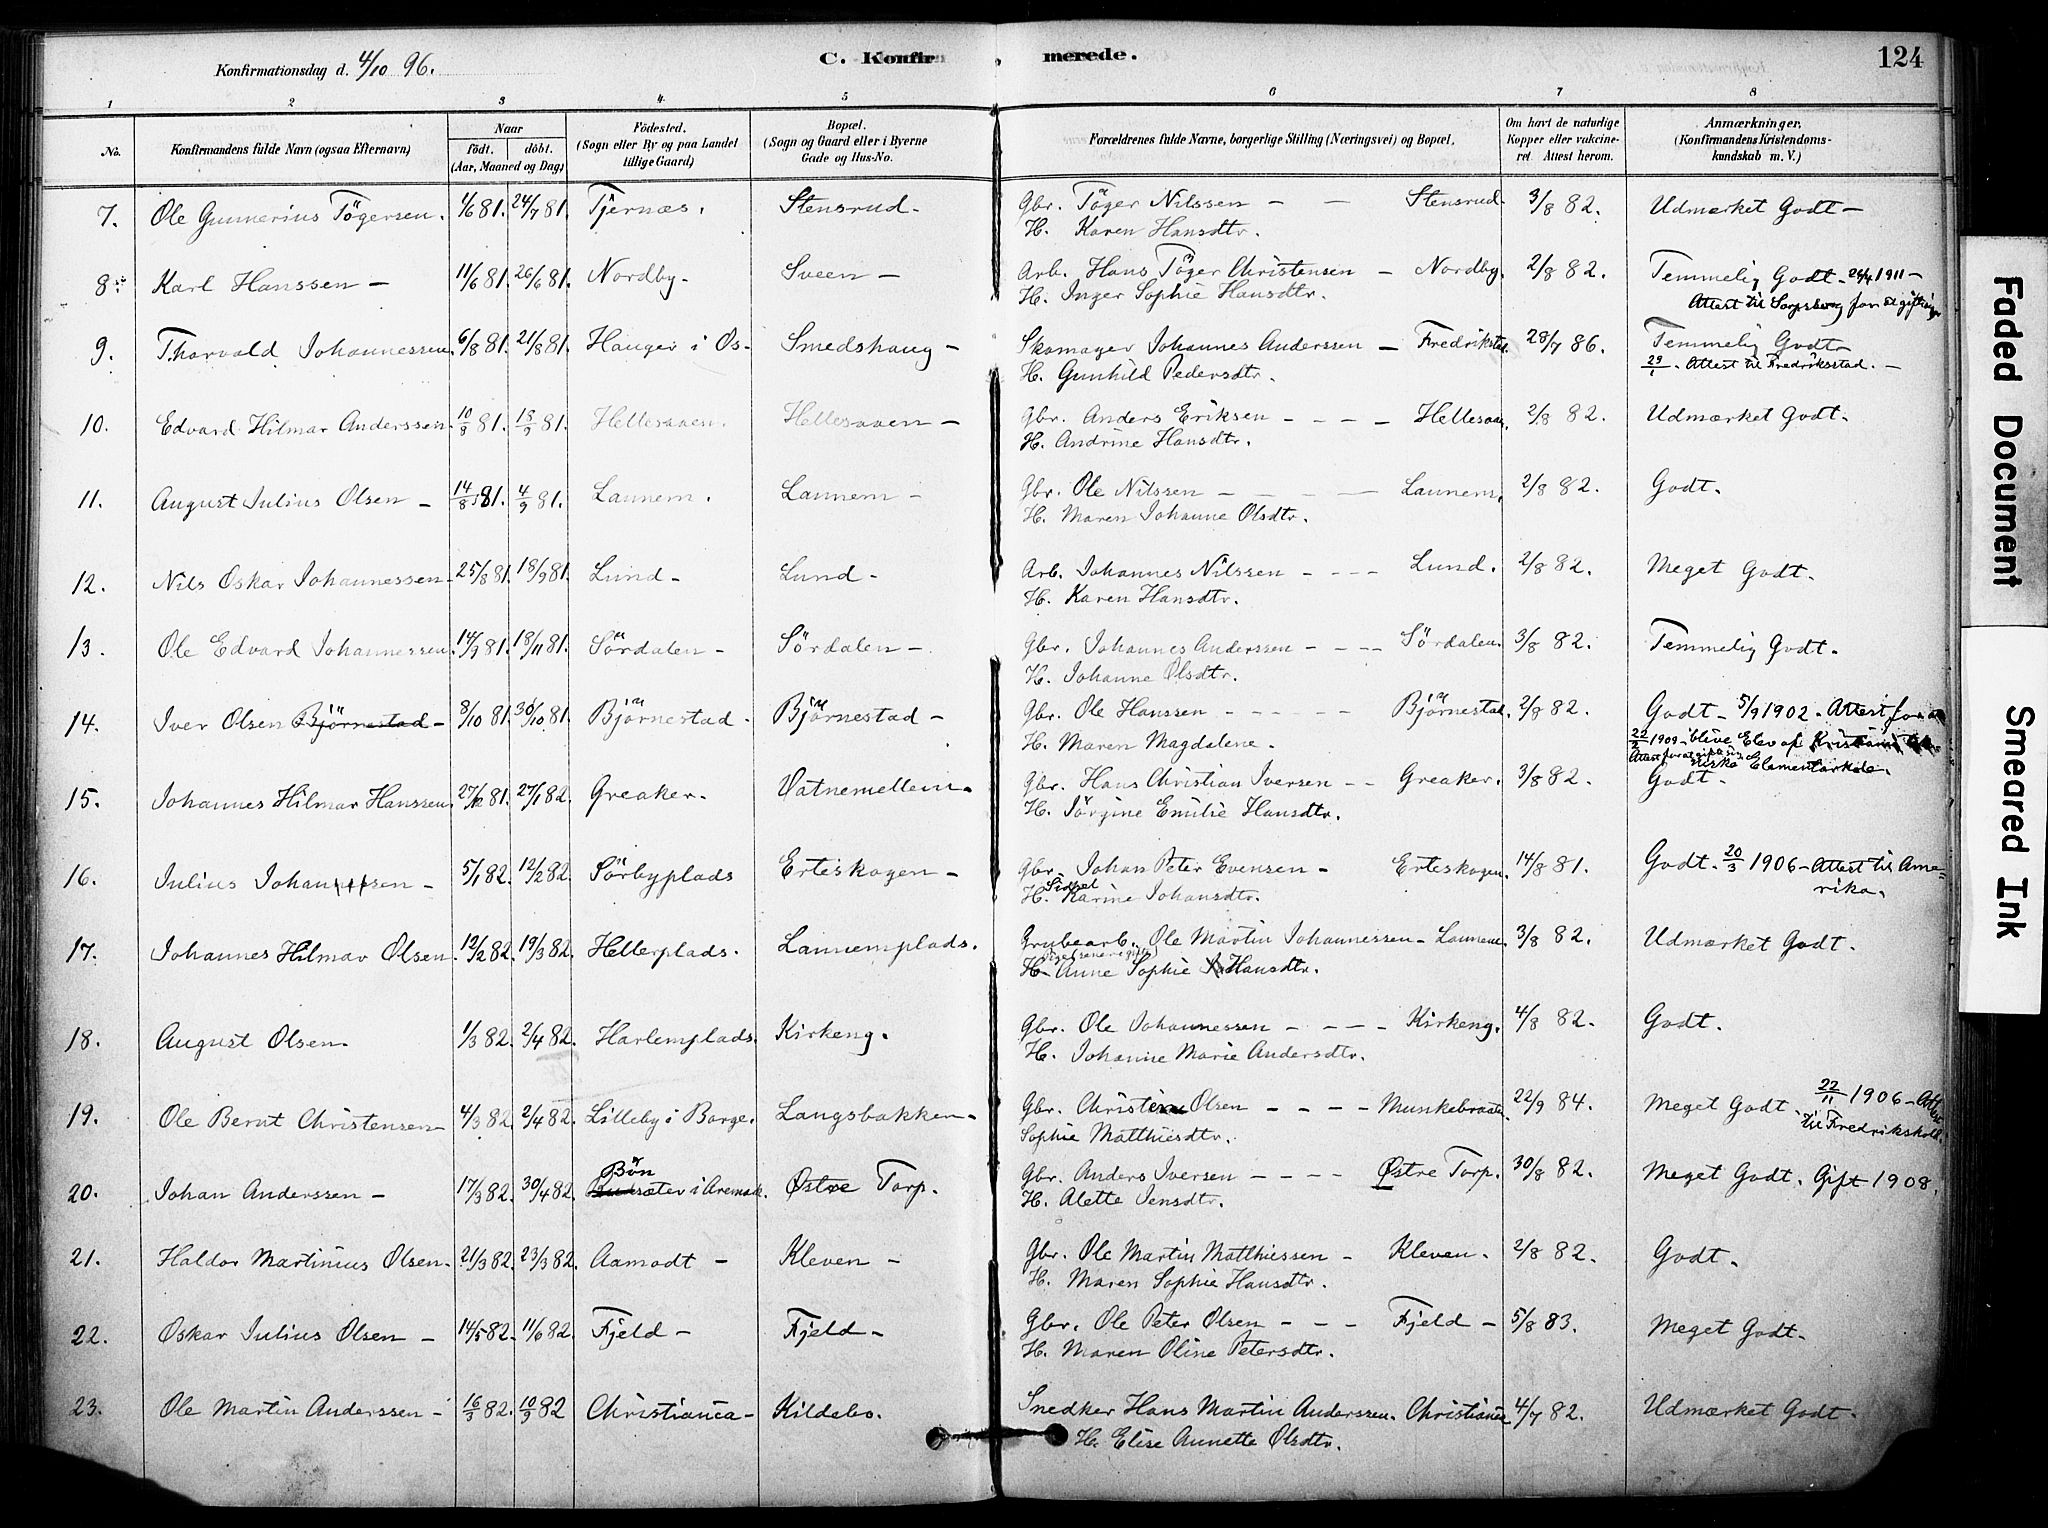 Konfirmationsdag d. 4/10 96.
C. Konfirmerede.
124
1 2 3 4. 5 6 7 8
No.
Konfirmandens fulde Navn (ogsaa Efternavn)
Naar
født. døbt.
(Aar, Maaned og Dag)
Födested.
(Sogn eller By og paa Landet
tillige Gaard)
Bopæl.
(Sogn og Gaard eller i Byerne
Gade og Hus-No.
Forældrenes fulde Navne, borgerlige Stilling (Næringsvei) og Bopæl.
Om havt de naturlige
Kopper eller vakcine-
ret. Attest herom.
Anmærkninger,
(Konfirmandens Kristendoms-
kundskab m. V.)
7. Ole Gunnerius Tögersen. 4/6 81. 24/7 81. Tjernæs. Stensrud. Gbr. Töger Nilssen — — Stensrud. 3/8 82. Udmærket Godt —
H. Karen Hansdtr.
8. Karl Hanssen — 11/6 81. 26/6 81. Nordby. Sveen — Arb. Hans Töger Christensen — Nordby. 2/8 82. Temmelig Godt. 24/4 1911 —
H. Inger Sophie Hansdtr. Attest til Sarpsborg for at giftes
9. Thorvald Johannessen. 6/8 81. 21/8 81. Hauger i Os. Smedshaug — Skomager Johannes Anderssen — Fredrikstad. 28/7 86. Temmelig Godt —
H. Gunhild Pedersdtr. 29/1. Attest til Fredriksstad. —
10. Edvard Hilmar Anderssen. 10/8 81. 18/9 81. Hellesaaen. Hellesaaen — Gbr. Anders Eriksen — — — — Hellesaaen. 2/8 82. Udmærket Godt.
H. Andrine Hansdtr.
11. August Julius Olsen — 14/8 81. 4/9 81. Lannem. Lannem — Gbr. Ole Nilssen — — — — Lannem. 2/8 82. Godt.
H. Maren Johanne Olsdtr.
12. Nils Oskar Johannessen. 25/8 81. 18/9 81. Lund — Lund — Arb. Johannes Nilssen — — — — Lund. 2/8 82. Meget Godt.
H. Karen Hansdtr.
13. Ole Edvard Johannessen. 14/9 81. 18/11 81. Sördalen — Sördalen — Gbr. Johannes Anderssen — — — — Sördalen. 3/8 82. Temmelig Godt.
H. Johanne Olsdtr.
14. Iver Olsen Björnestad — 8/10 81. 30/10 81. Björnestad. Björnestad — Gbr. Ole Hanssen — — — — — Björnestad. 2/8 82. Godt — 5/9 1902. Attest for at
H. Maren Magdalene. 22/2 1909 blive Elev af Kristiania
Elementærskole.
15. Johannes Hilmar Hanssen. 27/12 81. 27/1 82. Greaker. Vatnemellem. Gbr. Hans Christian Iversen — — Greaker. 3/8 82. Godt —
H. Jörgine Emilie Hansdtr.
16. Julius Johansen — 5/1 82. 12/2 82. Sörbyplads Erteskogen — Gbr. Johan Peter Evensen — Erteskogen. 14/8 81. Godt. 20/3 1906 — Attest til Ame=
H. Sidsel Karine Johansdtr. rika.
17. Johannes Hilmar Olsen. 12/2 82. 19/3 82. Hellerplads. Lannemplads. Grubearb. Ole Martin Johannessen — Lannem. 3/8 82. Udmærket Godt.
H. Anne Sophie Hansdtr.
18. August Olsen. 1/3 82. 2/4 82. Harlemplads. Kirkeng. Gbr. Ole Johannessen — — — — Kirkeng. 4/8 82. Godt.
H. Johanne Marie Andersdtr.
19. Ole Bernt Christensen — 4/3 82. 2/4 82. Lilleby i Borge. Langsbakken — Gbr. Christen Olsen — — — — Munkebraaten. 22/9 84. Meget Godt. 22/11 1906 — Attest
Sophie Matthiesdtr. til Fredrikshald.
20. Johan Anderssen — 17/3 82. 30/4 82. Bön i Aremark. Østre Torp. Gbr. Anders Iversen — — — — Østre Torp. 30/8 82. Meget Godt. Gift 1908.
H. Alette Jensdtr.
21. Haldor Martinius Olsen. 21/3 82. 23/3 82. Aamodt — Kleven — Gbr. Ole Martin Matthiessen — Kleven. 2/8 82. Godt.
H. Maren Sophie Hansdtr.
22. Oskar Julius Olsen — 14/5 82. 11/6 82. Fjeld — Fjeld — Gbr. Ole Peter Olsen — — — Fjeld — 5/8 83. Meget Godt.
H. Maren Oline Petersdtr.
23. Ole Martin Anderssen — 16/3 82. 10/9 82 Christiania — Kildebo. Snedker Hans Martin Anderssen. Christiania 4/7 82. Udmærket Godt.
H. Elise Annette Olsdtr.
Faded Document
Smeared Ink